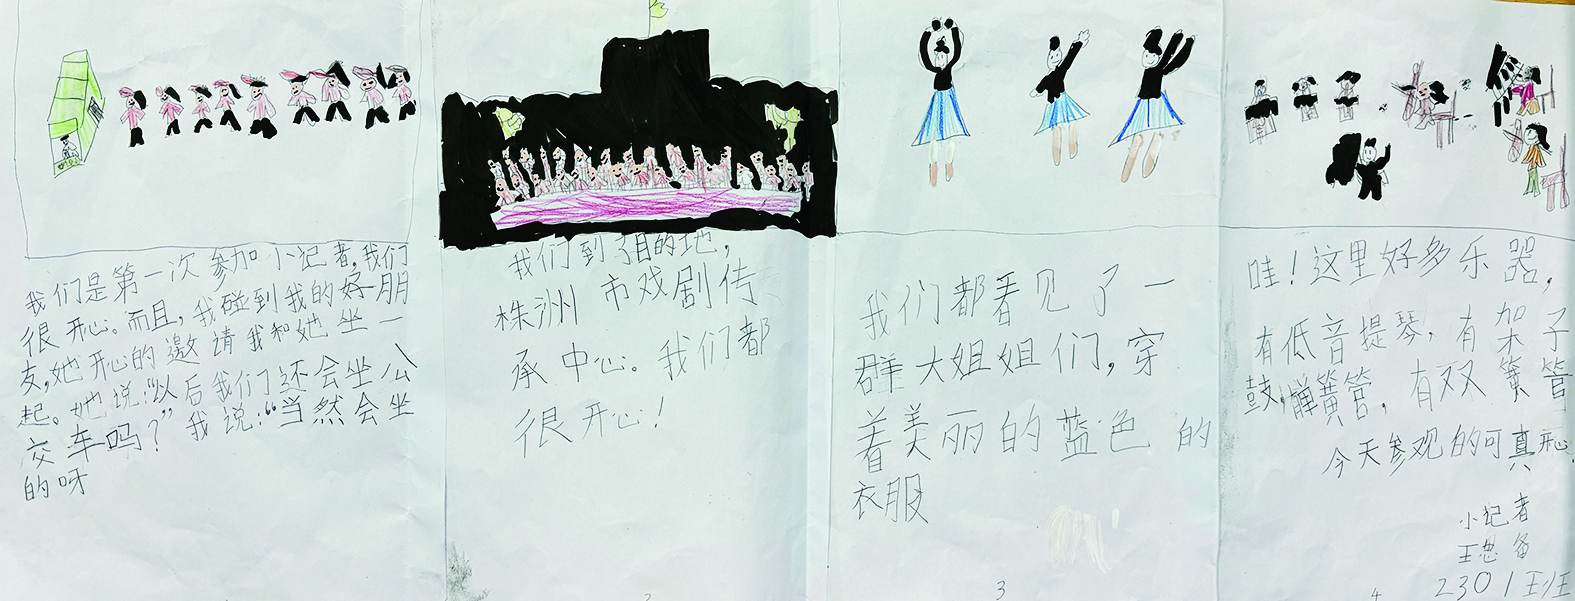 我们是第一次参加小记者,我们
很开心。而且,我碰到我的好朋
友,她开心的邀请我和她坐一
起。她说:“以后我们还会坐公
交车吗?”我说:“当然会坐
的呀
我们到了目的地,
株洲市戏剧传
承中心。我们都
很开心!
2
我们都看见了一
群大姐姐们,穿
着美丽的蓝色的
衣服
3
哇!这里好多乐器,
有低音提琴,有架子
鼓,单簧管,有双簧管
今天参观的可真开心.
小记者
王思
2301班
4